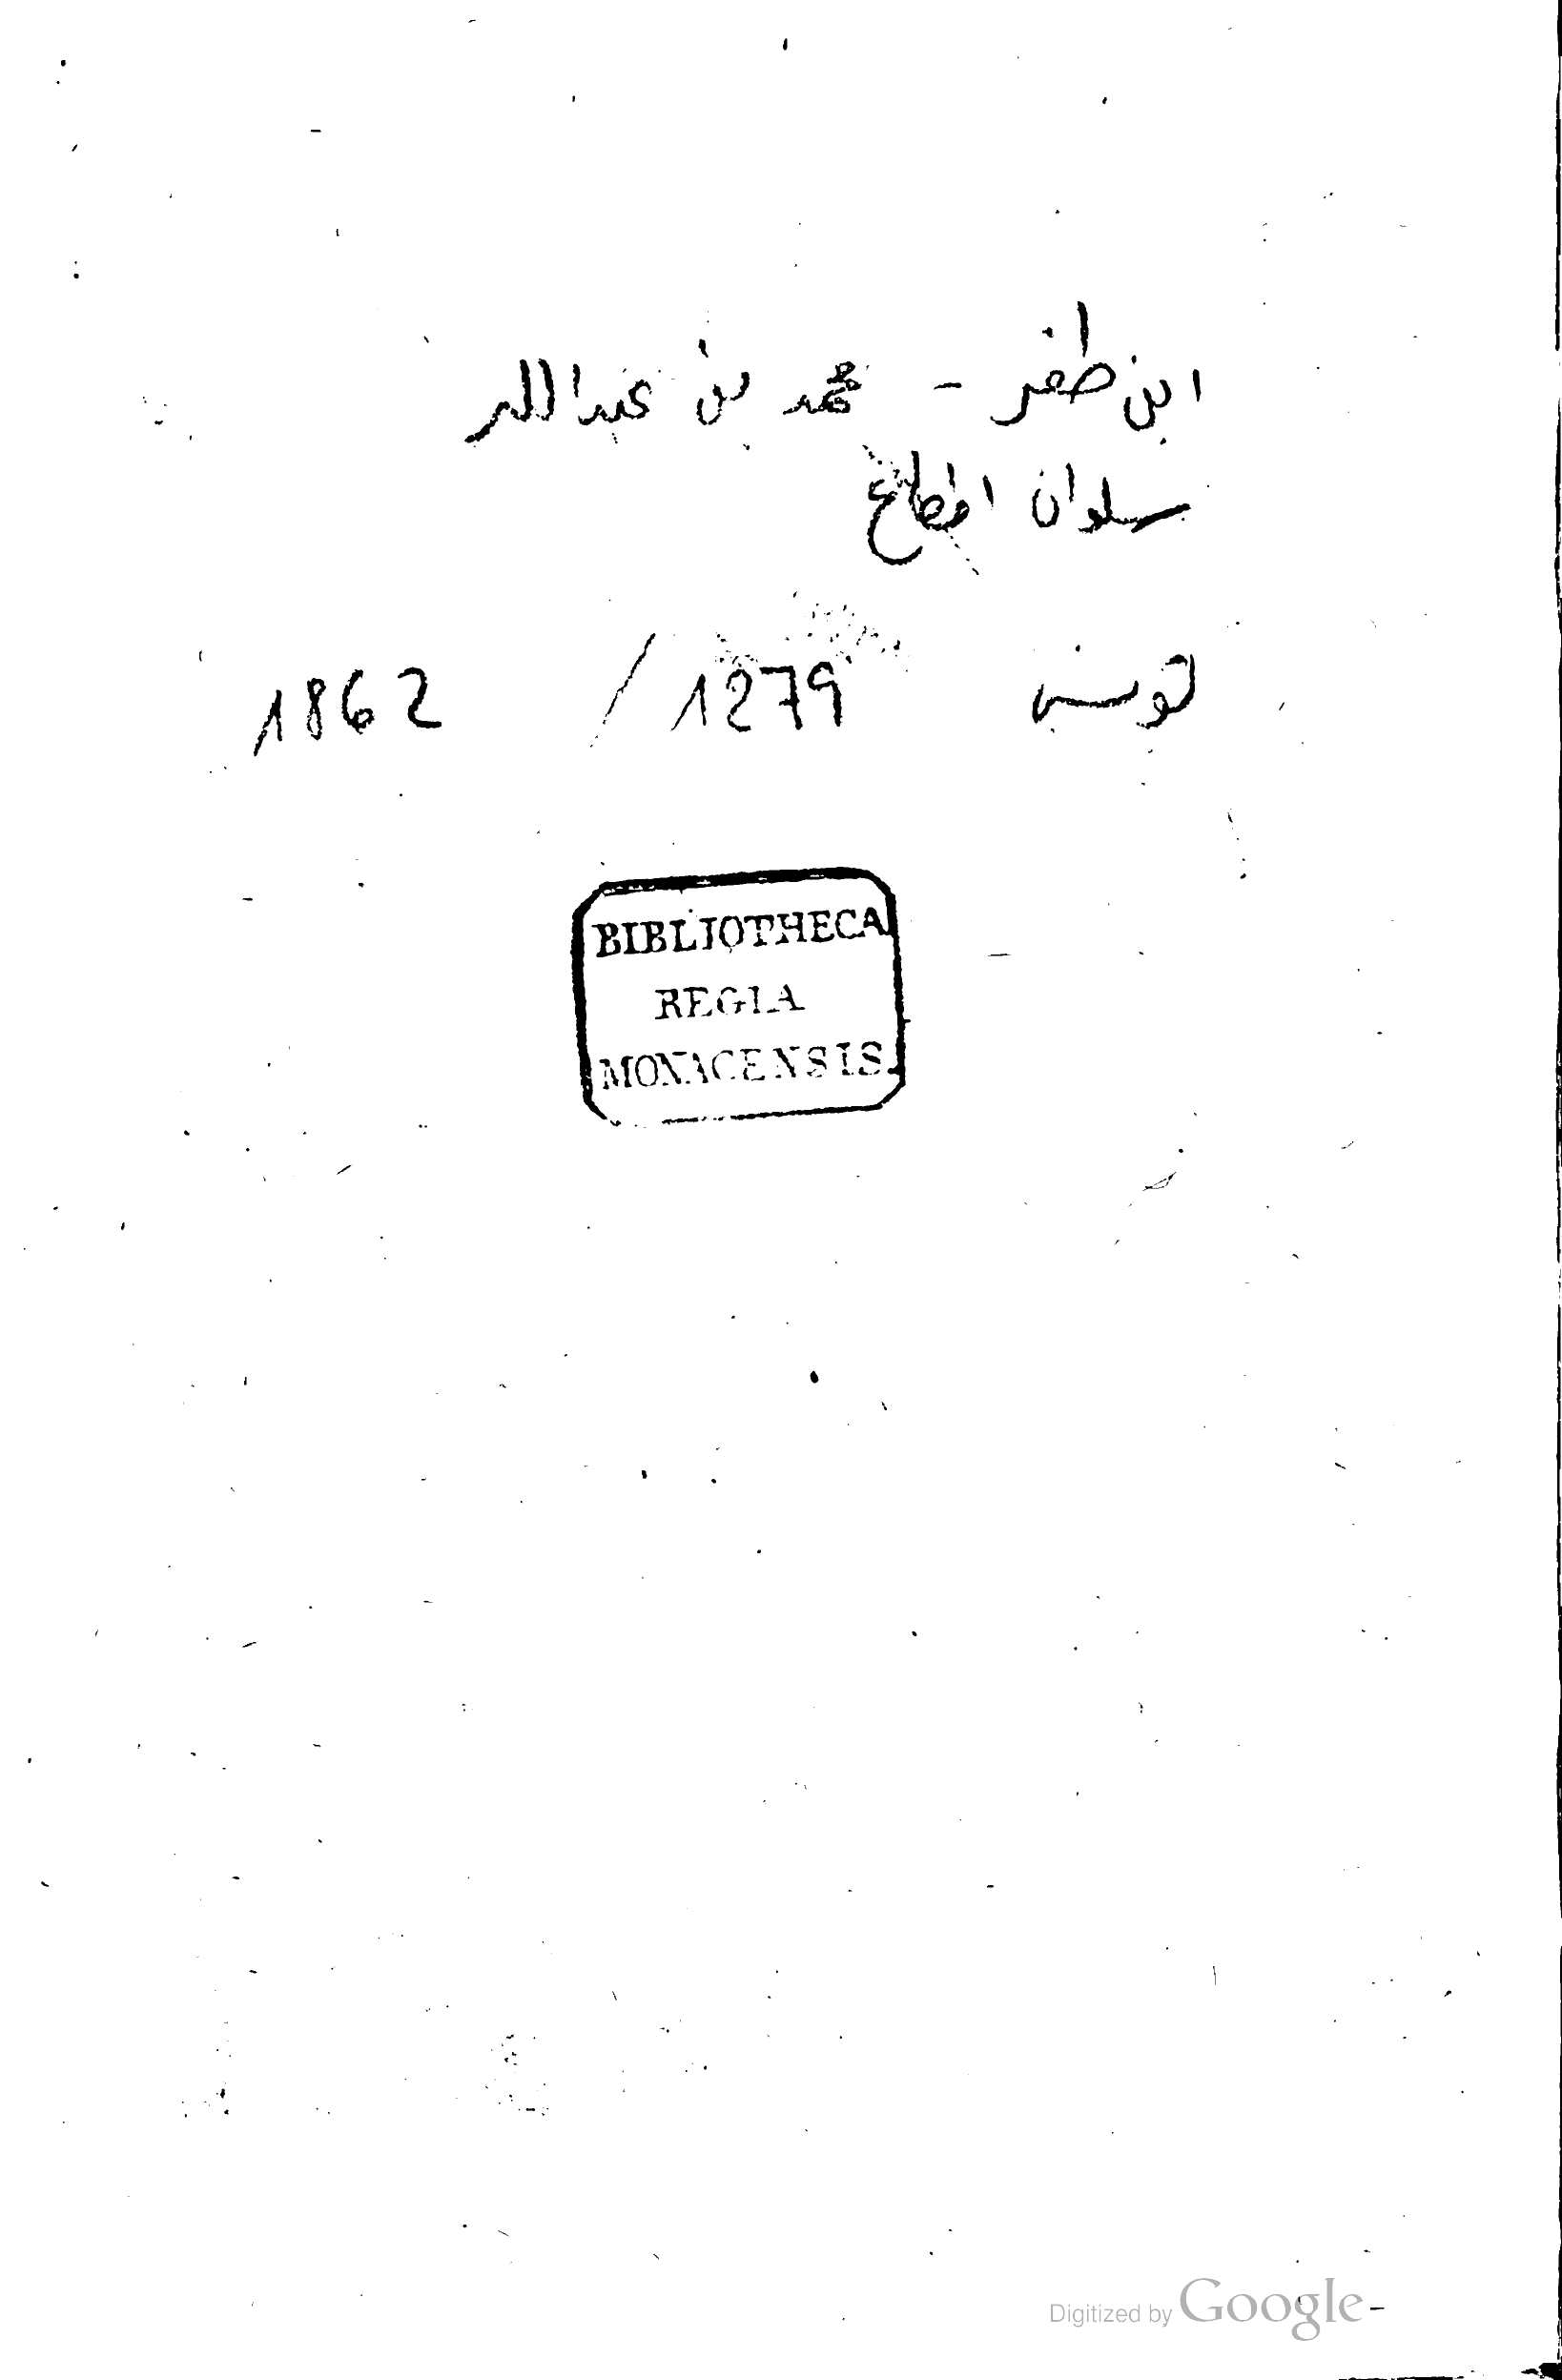 ابن ظفر - محمد بن عبد الله
سلوان المطاع
تونس 1279 / 1862
BIBLIOTHECA
REGIA
MONACENSIS.
Digitized by Google